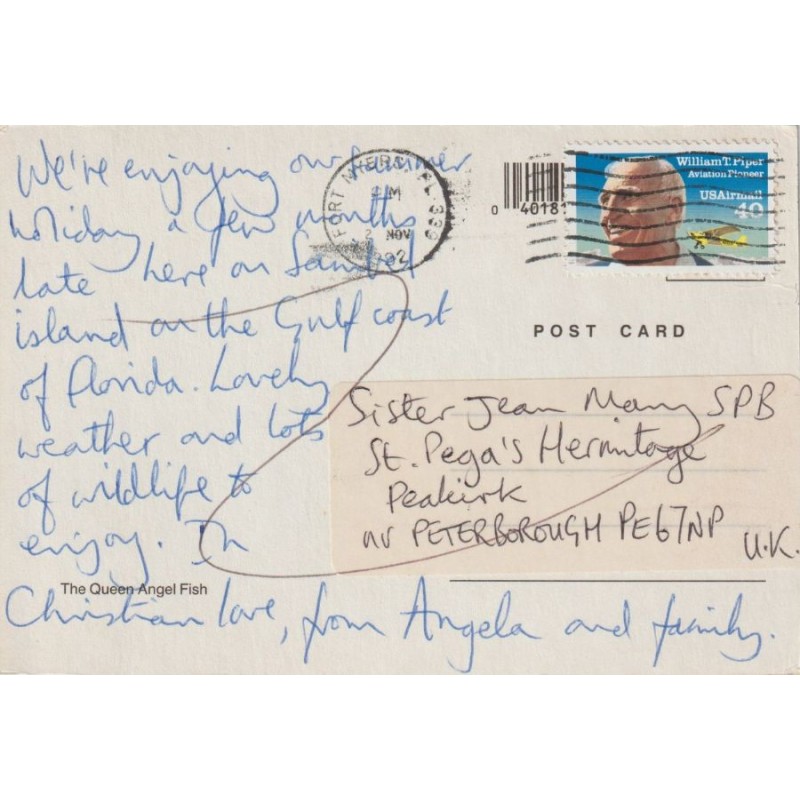 We're enjoying our summer
holiday a few months
late here on Sanibel
island on the Gulf coast
of Florida. Lovely
weather and lots
of wildlife to
enjoy. In
Christian love, from Angela and family.
The Queen Angel Fish
FORT MYERS, FL 339
PM
2 NOV
1992
0 40181
William T. Piper
Aviation Pioneer
USAirmail
40
POST CARD
Sister Jean Mary SPB
St. Pega's Hermitage
Peakirk
nr PETERBOROUGH PE6 7NP
U.K.